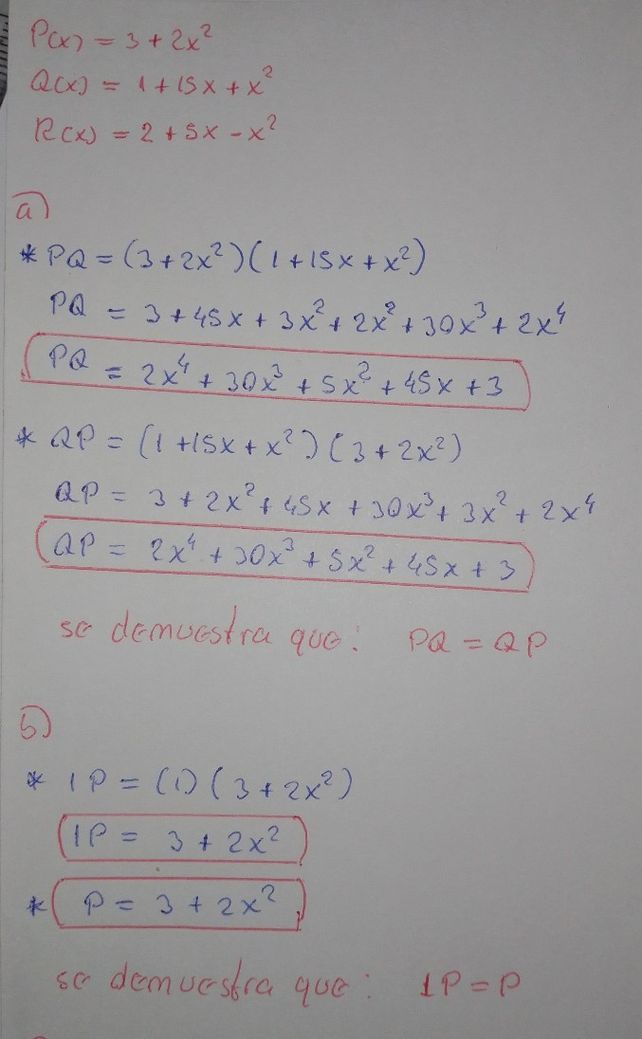 P(x) = 3 + 2x²
Q(x) = 1 + 15x + x²
R(x) = 2 + 5x - x²
a)
* PQ = (3 + 2x²)(1 + 15x + x²)
PQ = 3 + 45x + 3x² + 2x² + 30x³ + 2x⁴
PQ = 2x⁴ + 30x³ + 5x² + 45x + 3
* QP = (1 + 15x + x²)(3 + 2x²)
QP = 3 + 2x² + 45x + 30x³ + 3x² + 2x⁴
QP = 2x⁴ + 30x³ + 5x² + 45x + 3
se demuestra que: PQ = QP
b)
* 1P = (1)(3 + 2x²)
1P = 3 + 2x²
* P = 3 + 2x²
se demuestra que: 1P = P